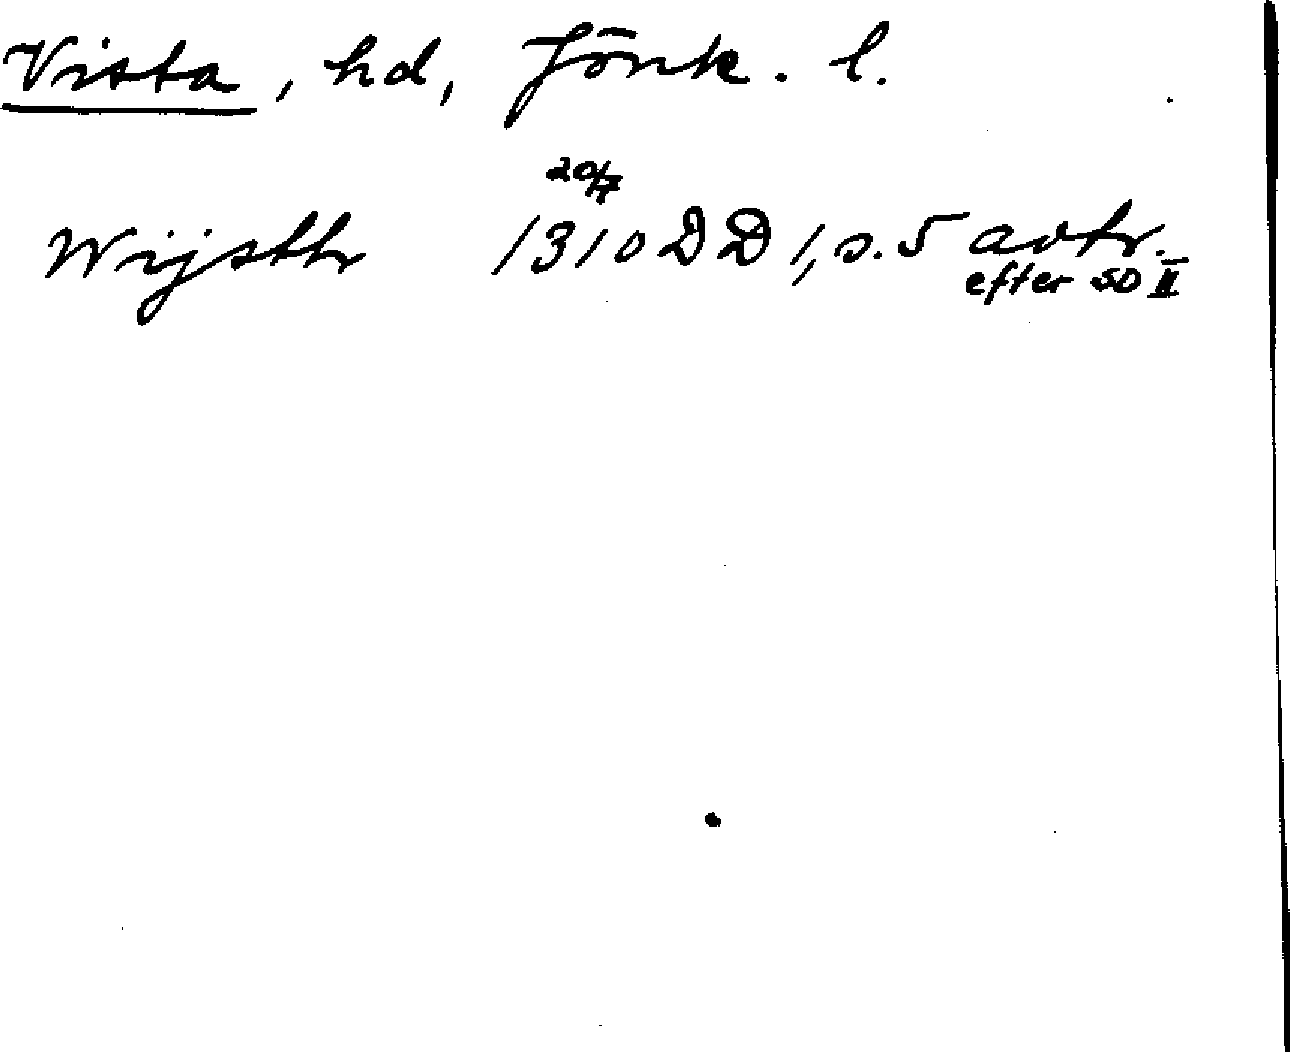 Vista, hd, Jönk. l.
20/7
Wijsthr 1310 DD 1, s. 5 avtr.
efter SD II